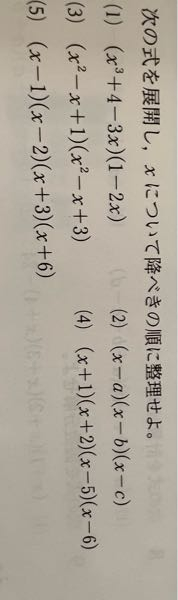 次の式を展開し，xについて降べきの順に整理せよ。
(1) (x³+4−3x)(1−2x) (2) (x−a)(x−b)(x−c)
(3) (x²−x+1)(x²−x+3) (4) (x+1)(x+2)(x−5)(x−6)
(5) (x−1)(x−2)(x+3)(x+6)